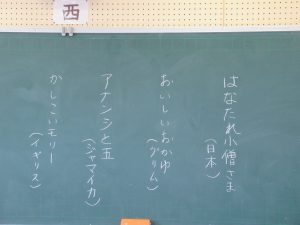 西
はなたれ小僧さま
(日本)
おいしいおかゆ
(グリム)
アナンシと五
(ジャマイカ)
かしこいモリー
(イギリス)